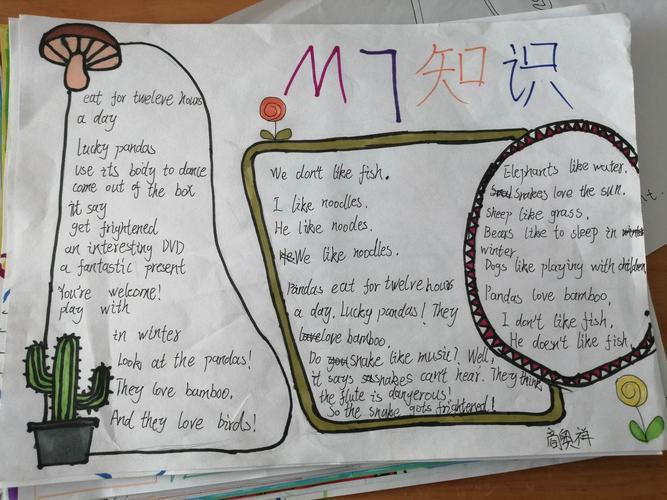 M7知识
eat for tweleve hours
a day
Lucky pandas
use its body to dance
come out of the box
it say
get frightened
an interesting DVD
a fantastic present
You're welcome!
play with
in winter
Look at the pandas!
They love bamboo.
And they love birds!
We don't like fish.
I like noodles.
He like noodes.
We like noodles.
Pandas eat for twelve hours
a day. Lucky pandas! They
love bamboo.
Do snake like music? Well,
it says snakes can't hear. They think
the flute is dangerous!
So the snake gots frightened!
Elephants like water.
Snakes love the sun.
Sheep like grass.
Bears like to sleep in
winter.
Dogs like playing with children
Pandas love bamboo.
I don't like fish.
He doesn't like fish.
祥